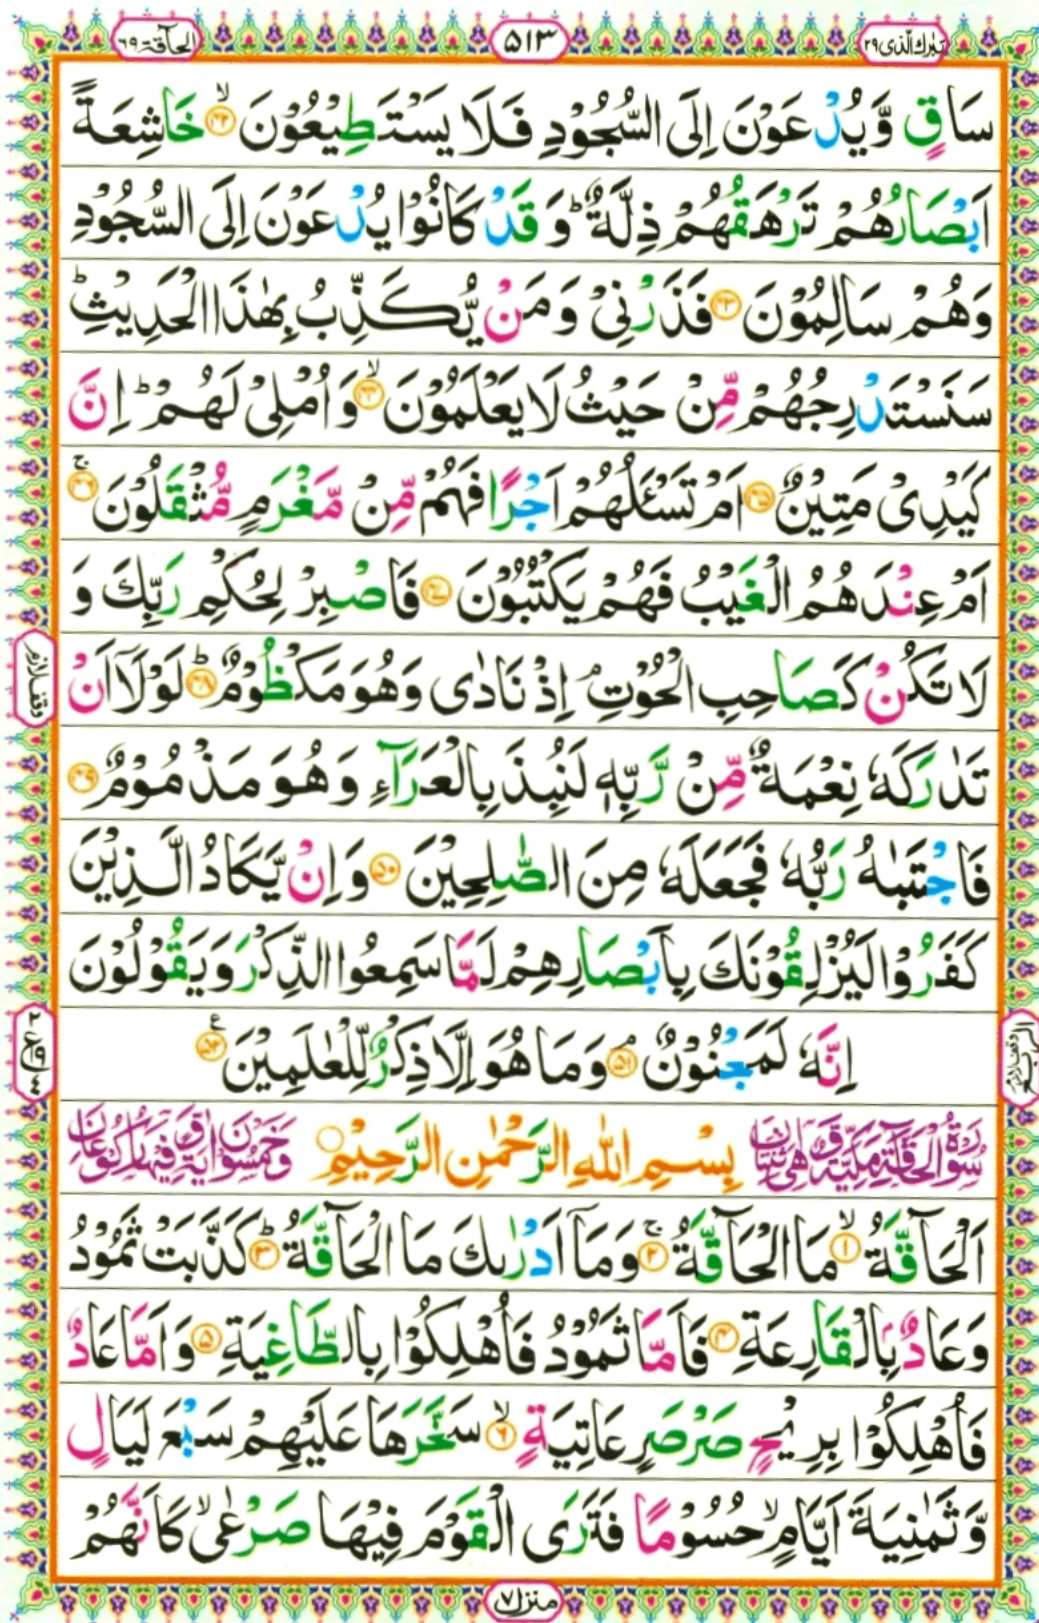 تبرك الذى ٢٩
٥١٣
الحآقة ٦٩
سَاقٍ وَّيُدْعَوْنَ اِلَى السُّجُوْدِ فَلَا يَسْتَطِيْعُوْنَ ۙ‏﴿۴۲﴾ خَاشِعَةً
اَبْصَارُهُمْ تَرْهَقُهُمْ ذِلَّةٌ ؕ وَ قَدْ كَانُوْا يُدْعَوْنَ اِلَى السُّجُوْدِ
وَهُمْ سَالِمُوْنَ ﴿۴۳﴾ فَذَرْنِىْ وَ مَنْ يُّكَذِّبُ بِهٰذَا الْحَدِيْثِ ؕ
سَنَسْتَدْرِجُهُمْ مِّنْ حَيْثُ لَا يَعْلَمُوْنَ ۙ﴿۴۴﴾ وَ اُمْلِىْ لَهُمْ ؕ اِنَّ
كَيْدِىْ مَتِيْنٌ ﴿۴۵﴾ اَمْ تَسْئَلُهُمْ اَجْرًا فَهُمْ مِّنْ مَّغْرَمٍ مُّثْقَلُوْنَ ۚ﴿۴۶﴾
اَمْ عِنْدَهُمُ الْغَيْبُ فَهُمْ يَكْتُبُوْنَ ﴿۴۷﴾ فَاصْبِرْ لِحُكْمِ رَبِّكَ وَ
لَا تَكُنْ كَصَاحِبِ الْحُوْتِ ۘ اِذْ نَادٰى وَهُوَ مَكْظُوْمٌ ؕ﴿۴۸﴾ لَوْلَاۤ اَنْ
تَدٰرَكَهٗ نِعْمَةٌ مِّنْ رَّبِّهٖ لَنُبِذَ بِالْعَرَآءِ وَ هُوَ مَذْمُوْمٌ ﴿۴۹﴾
فَاجْتَبٰىهُ رَبُّهٗ فَجَعَلَهٗ مِنَ الصّٰلِحِيْنَ ﴿۵۰﴾ وَ اِنْ يَّكَادُ الَّذِيْنَ
كَفَرُوْا لَيُزْلِقُوْنَكَ بِاَبْصَارِهِمْ لَمَّا سَمِعُوا الذِّكْرَ وَ يَقُوْلُوْنَ
اِنَّهٗ لَمَجْنُوْنٌ ۘ﴿۵۱﴾ وَ مَا هُوَ اِلَّا ذِكْرٌ لِّلْعٰلَمِيْنَ ﴿۵۲﴾ ع
سُوْرَةُ الْحَآقَّةِ مَكِّيَّةٌ وَّهِىَ اثْنَتَانِ بِسْمِ اللهِ الرَّحْمٰنِ الرَّحِيْمِ وَخَمْسُوْنَ اٰيَةً وَّفِيْهَا رُكُوْعَانِ
اَلْحَآقَّةُ ۙ﴿۱﴾ مَا الْحَآقَّةُ ۚ﴿۲﴾ وَمَاۤ اَدْرٰىكَ مَا الْحَآقَّةُ ؕ﴿۳﴾ كَذَّبَتْ ثَمُوْدُ
وَعَادٌۢ بِالْقَارِعَةِ ﴿۴﴾ فَاَمَّا ثَمُوْدُ فَاُهْلِكُوْا بِالطَّاغِيَةِ ﴿۵﴾ وَ اَمَّا عَادٌ
فَاُهْلِكُوْا بِرِيْحٍ صَرْصَرٍ عَاتِيَةٍ ۙ﴿۶﴾ سَخَّرَهَا عَلَيْهِمْ سَبْعَ لَيَالٍ
وَّ ثَمٰنِيَةَ اَيَّامٍ ۙ حُسُوْمًا فَتَرَى الْقَوْمَ فِيْهَا صَرْعٰى ۙ كَاَنَّهُمْ
وقف لازم
منزل ٧